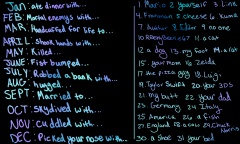 Jan: ate dinner with...
FEB: Mortal enemys with...
MAR: Handcuffed for life to...
APRIL: Shook hands with...
MAY: Killed...
JUNE: Fist bumped...
JULY: Robbed a bank with...
AUG: hugged...
SEPT: Married to...
OCT: Skydived with...
NOV: cuddled with...
DEC: Picked your nose with...
1 Mario 2 yourself 3 Link
4 Freeman 5 cheese 6 Kuma
7 Author 8 9 no one
10 11 cat
12 a dog 13 my foot 14 a rat
15. your mom 16 Zelda
17 the pizza guy 18 Luigi
19 Taylor Swift 20 your DS
21 my butt 22 your dad
23 Germany 24 Italy
25 America 26 a fish
27 England 28 a cow 29 Chuck Norris
30 a shoe 31 your bed